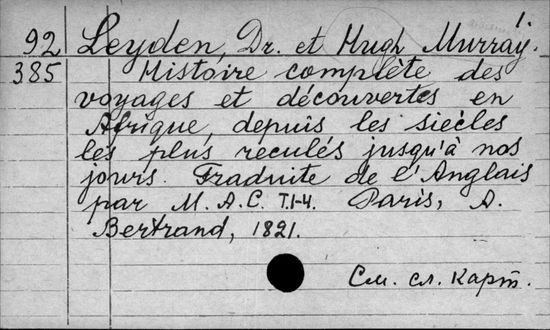 1.
92 Leyden, Dr. et Hugh Murray.
385 Histoire complète des
voyages et découvertes en
Afrique, depuis les siècles
les plus reculés jusqu'à nos
jours. Traduite de l'Anglais
par M. A. C. T. 1-4. Paris, A.
Bertrand, 1821.
См. сл. карт.